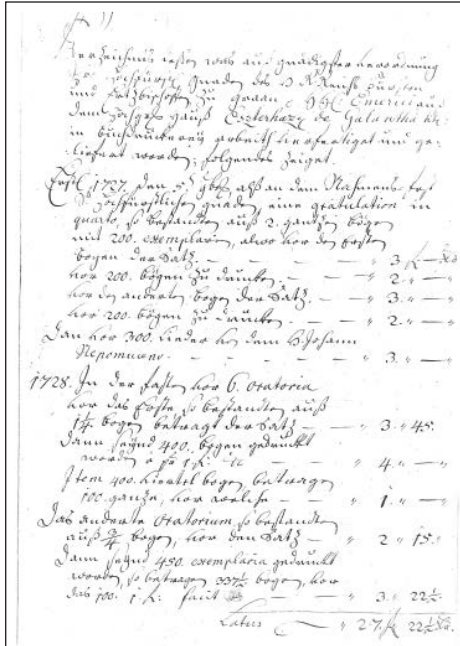 Verzeichnus dessen was auß gnädigster verordnung
Ihro Hochfürstl: Gnaden des H: R: Reichs Fürsten
und Ertzbischoffen zu Graan Emerici auß
dem Hauß Eszterházy de Galantha
in buchdruckerey arbeith verfertiget und ge-
liefert worden, folgendes zeiget.
Erstl: 1727. den 5. 9bris alß an dem Nahmens fest
Hochfürstlichen gnaden eine gratulation in
quarto, so bestandten auß 2. gantzen bögen
mit 200. exemplarien, alwo vor den Ersten
bogen der Satz. — " 3 f —
vor 200. bögen zu drucken. — " 2. " —
vor den anderten bogen der Satz. — " 3. " —
vor 200. bögen zu drucken. — " 2. " —
Dan vor 300. Lieder von dem H: Johann
Nepomuceno. — " 3. " —
1728. In der fasten vor 6. Oratoria
vor das Erste so bestandten auß
1¼ bogen betragt der Satz — " 3. " 45.
Dann seynd 400. bogen gedruckt
worden — " 4. " —
Item 400. viertel bogen, betragen
100. gantze, vor welche — " 1. " —
Das anderte Oratorium so bestandten
auß ¾ bogen, vor den Satz — " 2 " 15.
Dann seynd 450. exemplaria gedruckt
worden, so betragen 337½ bogen, vor
das 100. 1 f: facit — " 3. " 22½.
Latus — " 27. f 22½